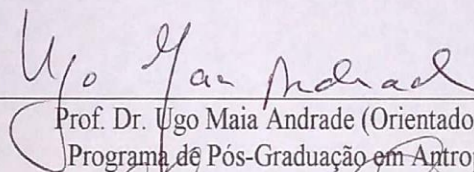 Ugo Maia Andrade
Prof. Dr. Ugo Maia Andrade (Orientado
Programa de Pós-Graduação em Antro